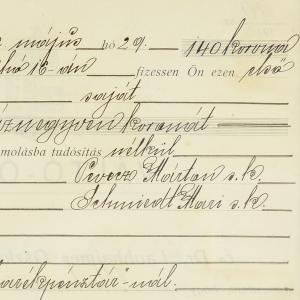 május hó 29. 140 korona
hó 16-án fizessen Ön ezen első
saját
znegyven koronát
molásba tudósítás nélkül
Márton s.k.
Schmiedt Mari s.k.
arékpénztár"-nál.